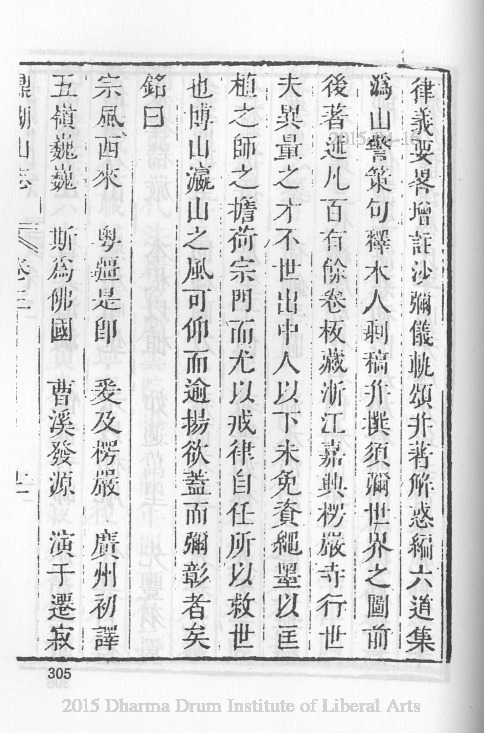 律義要畧增註沙彌儀軌頌并著解惑編六道集
溈山警策句釋木人剩稿并撰須彌世界之圖前
後著述凡百有餘卷板藏浙江嘉興楞嚴寺行世
夫異量之才不世出中人以下未免資繩墨以匡
植之師之擔荷宗門而尤以戒律自任所以救世
也博山瀛山之風可仰而逾揚欲蓋而彌彰者矣
銘曰
宗風西來　粵疆是卽　爰及楞嚴　廣州初譯
五嶺巍巍　斯為佛國　曹溪發源　演于遷寂
鼎湖山志　卷二
305
2015 Dharma Drum Institute of Liberal Arts